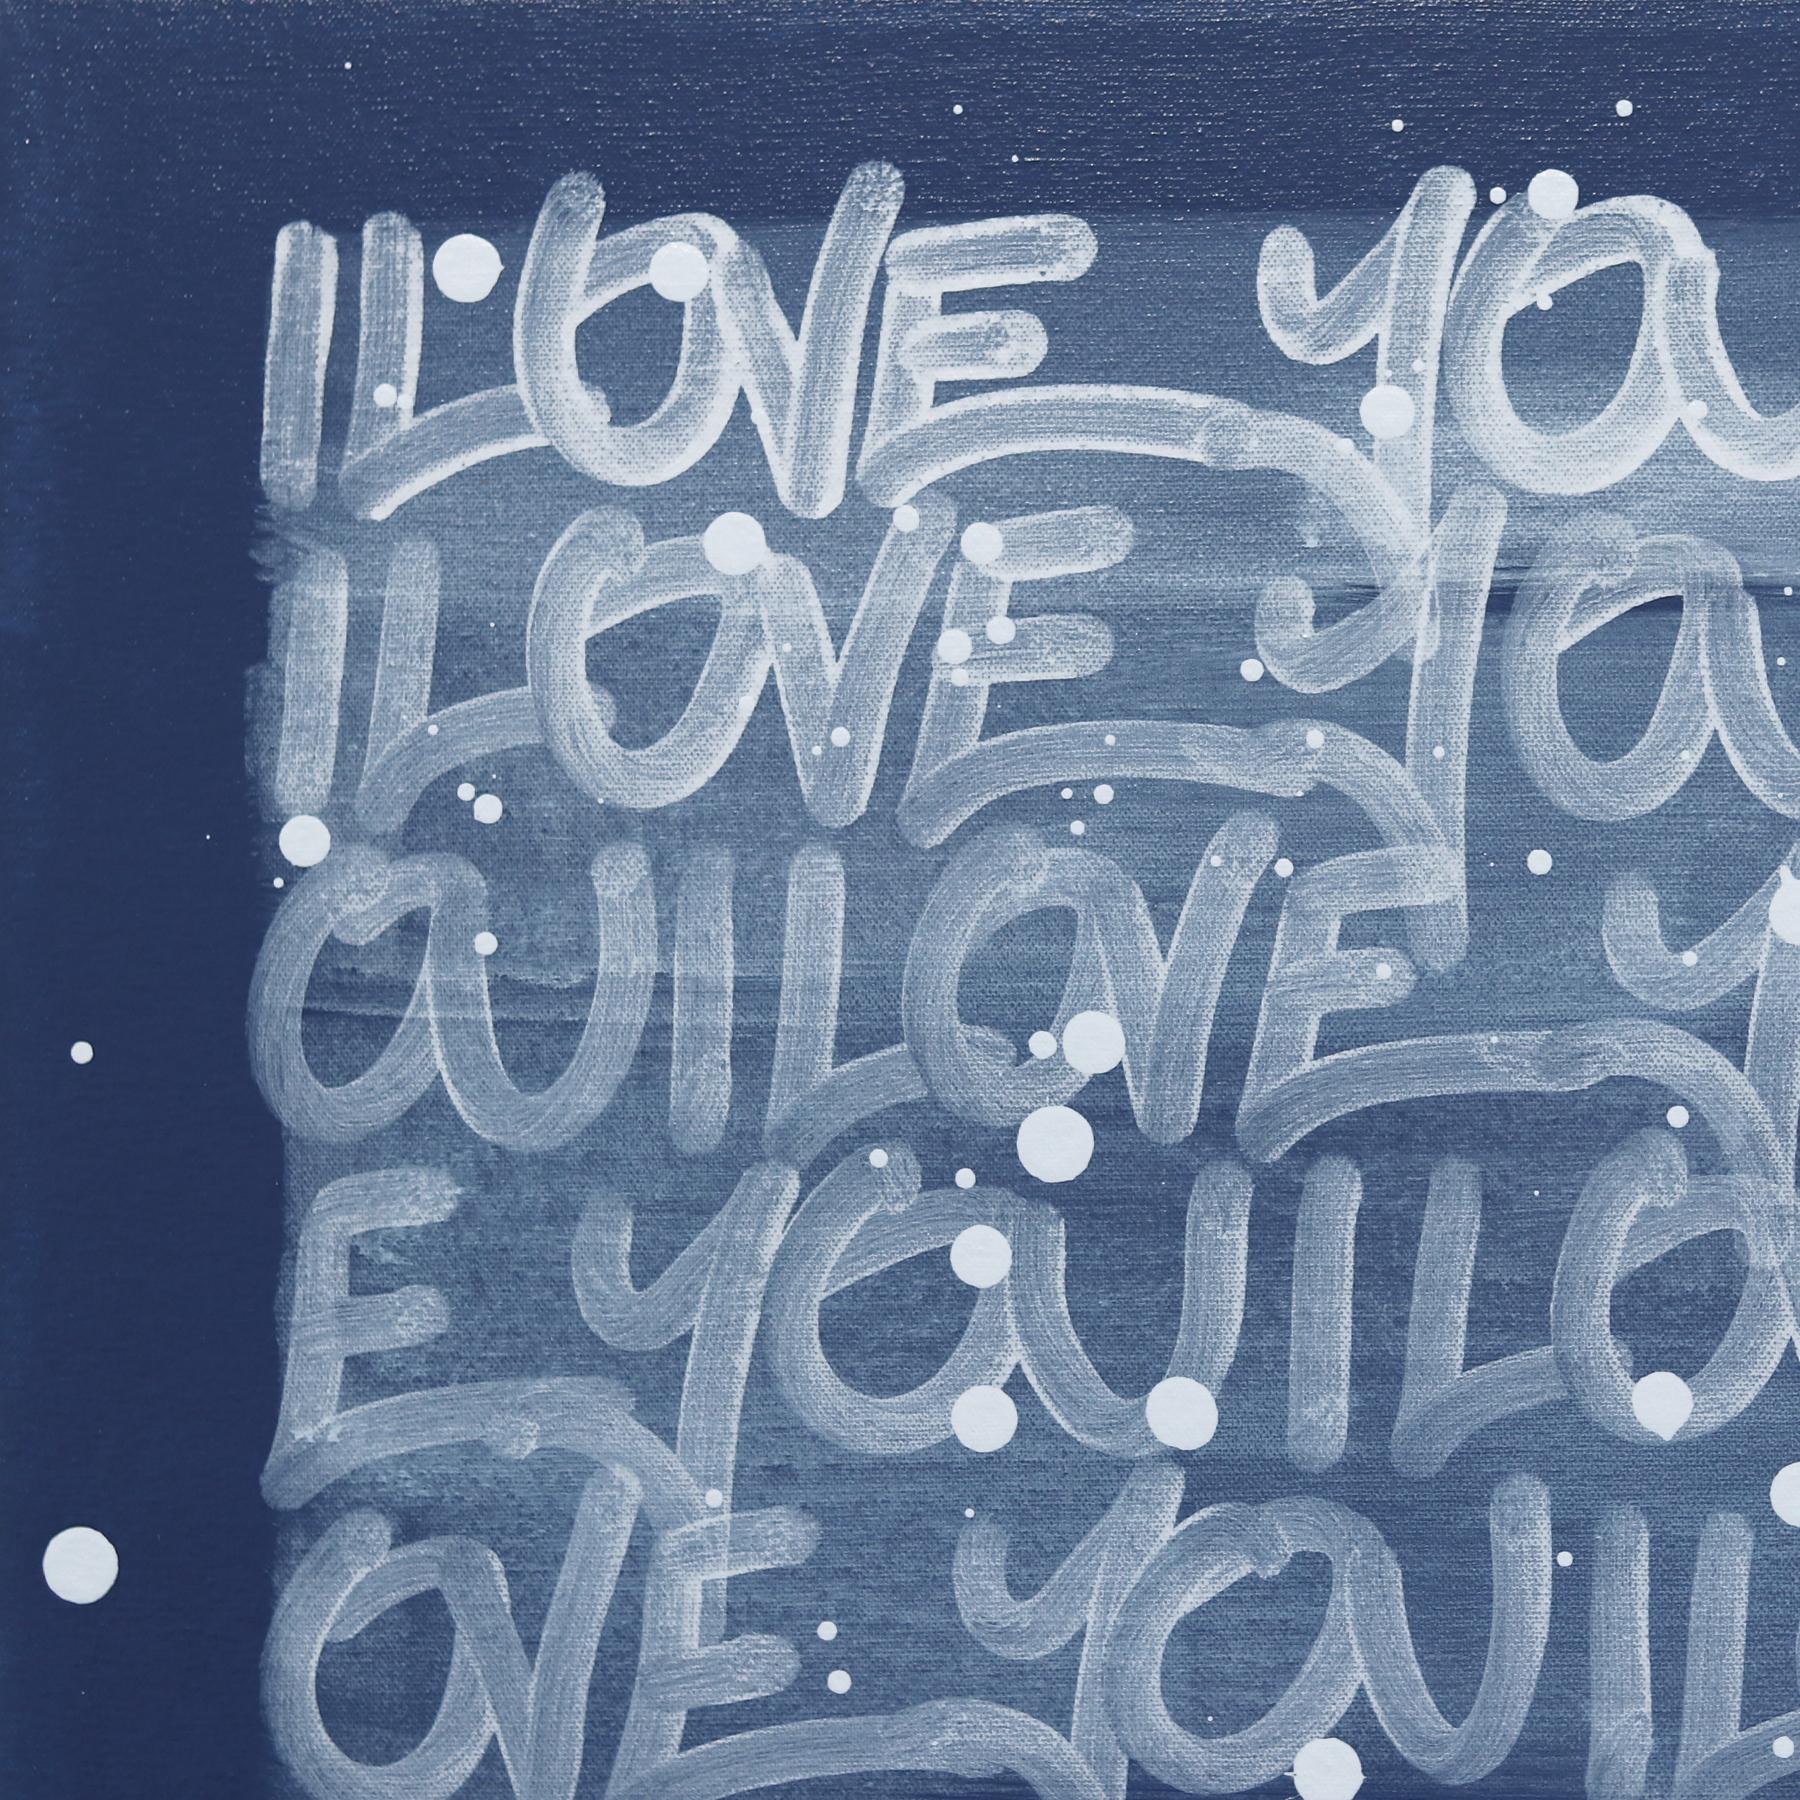 I LOVE YO
I LOVE YO
OU I LOVE Y
E YOU I LO
OVE YOU I L